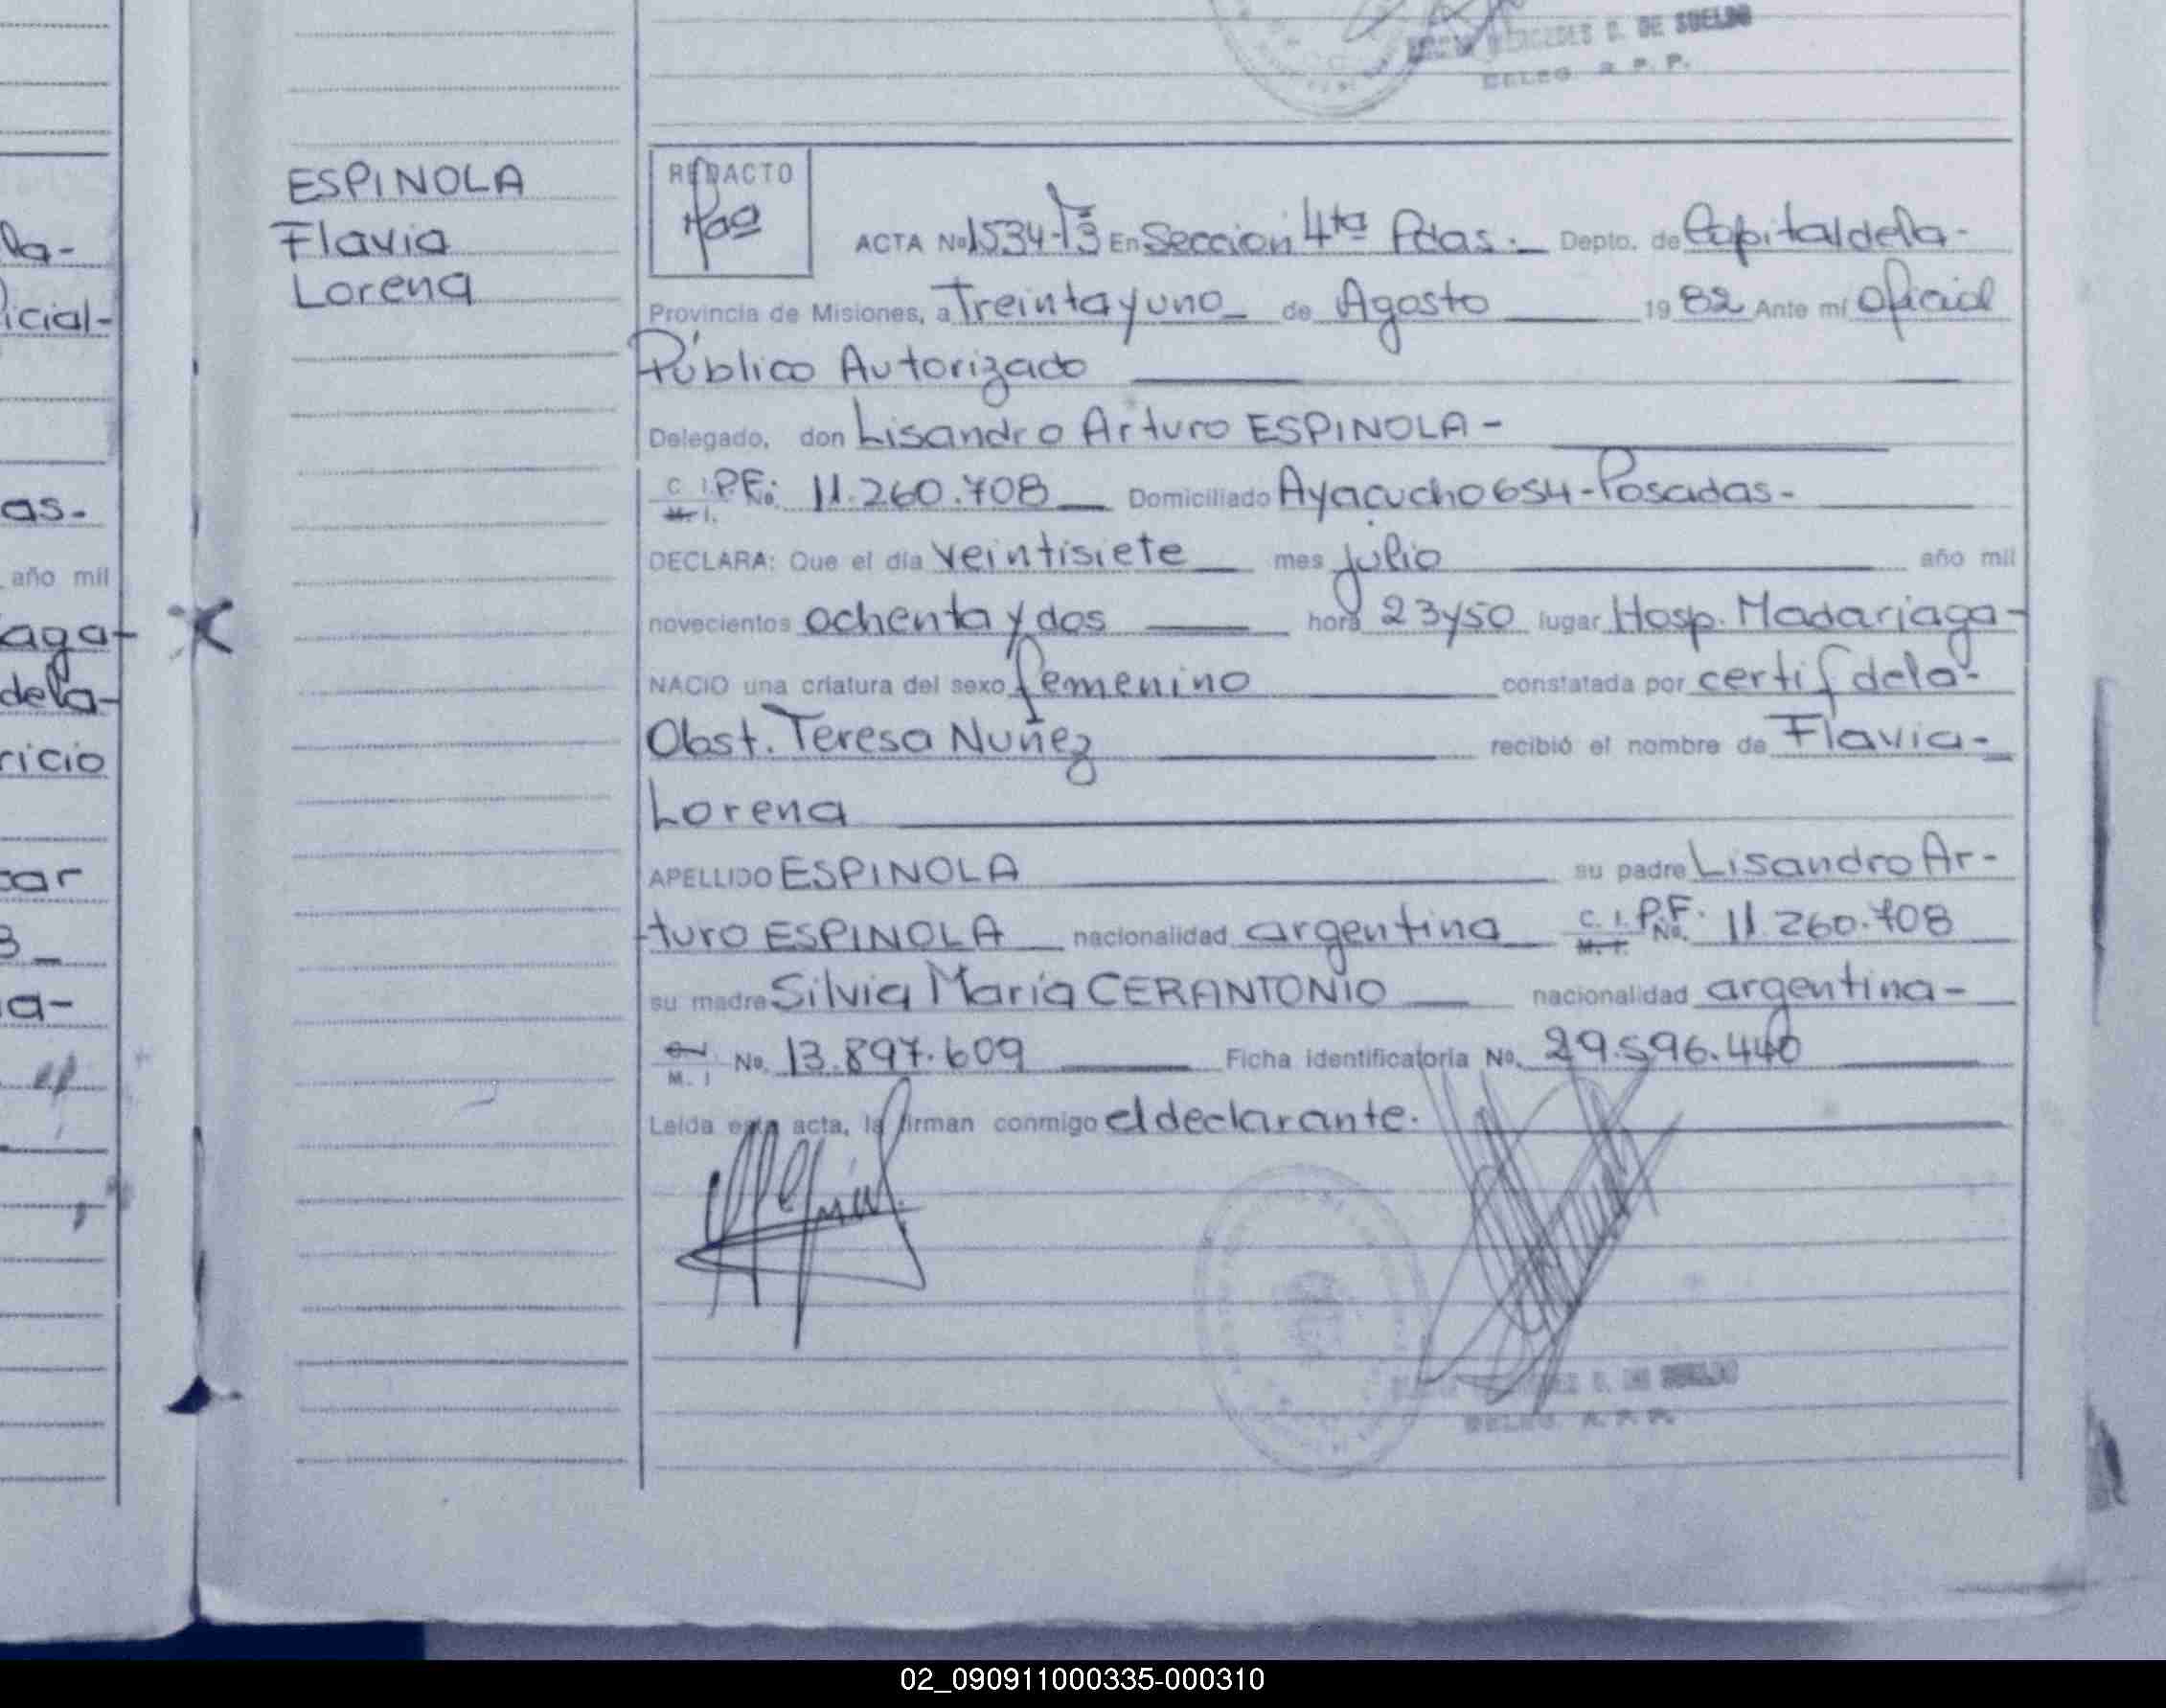 DE SUELDO
DELEG. R. P. P.
la-
icial-
as.
año mil
aga-
dela-
ricio
car
3_
a-
ESPINOLA
Flavia
Lorena
REDACTO
ACTA No 1534-T3 En Sección 4ta Pdas.- Depto. de Capital de la-
Provincia de Misiones, a Treinta y uno de Agosto 1982 Ante mí Oficial
Público Autorizado
Delegado, don Lisandro Arturo ESPINOLA-
C. I. P.F. No. 11.260.708 Domiciliado Ayacucho 654-Posadas-
M. I.
DECLARA: Que el día veintisiete mes julio año mil
novecientos ochenta y dos hora 23y50 lugar Hosp. Madariaga-
NACIO una criatura del sexo femenino constatada por certif de la-
Obst. Teresa Nuñez recibió el nombre de Flavia-
Lorena
APELLIDO ESPINOLA su padre Lisandro Ar-
turo ESPINOLA nacionalidad argentina C. I. P.F. No. 11.260.708
M. I.
su madre Silvia María CERANTONIO nacionalidad argentina-
M. I No. 13.897.609 Ficha identificatoria No. 29.596.440
Leída esta acta, la firman conmigo el declarante.
DELEG. R. P. P.
02_090911000335-000310